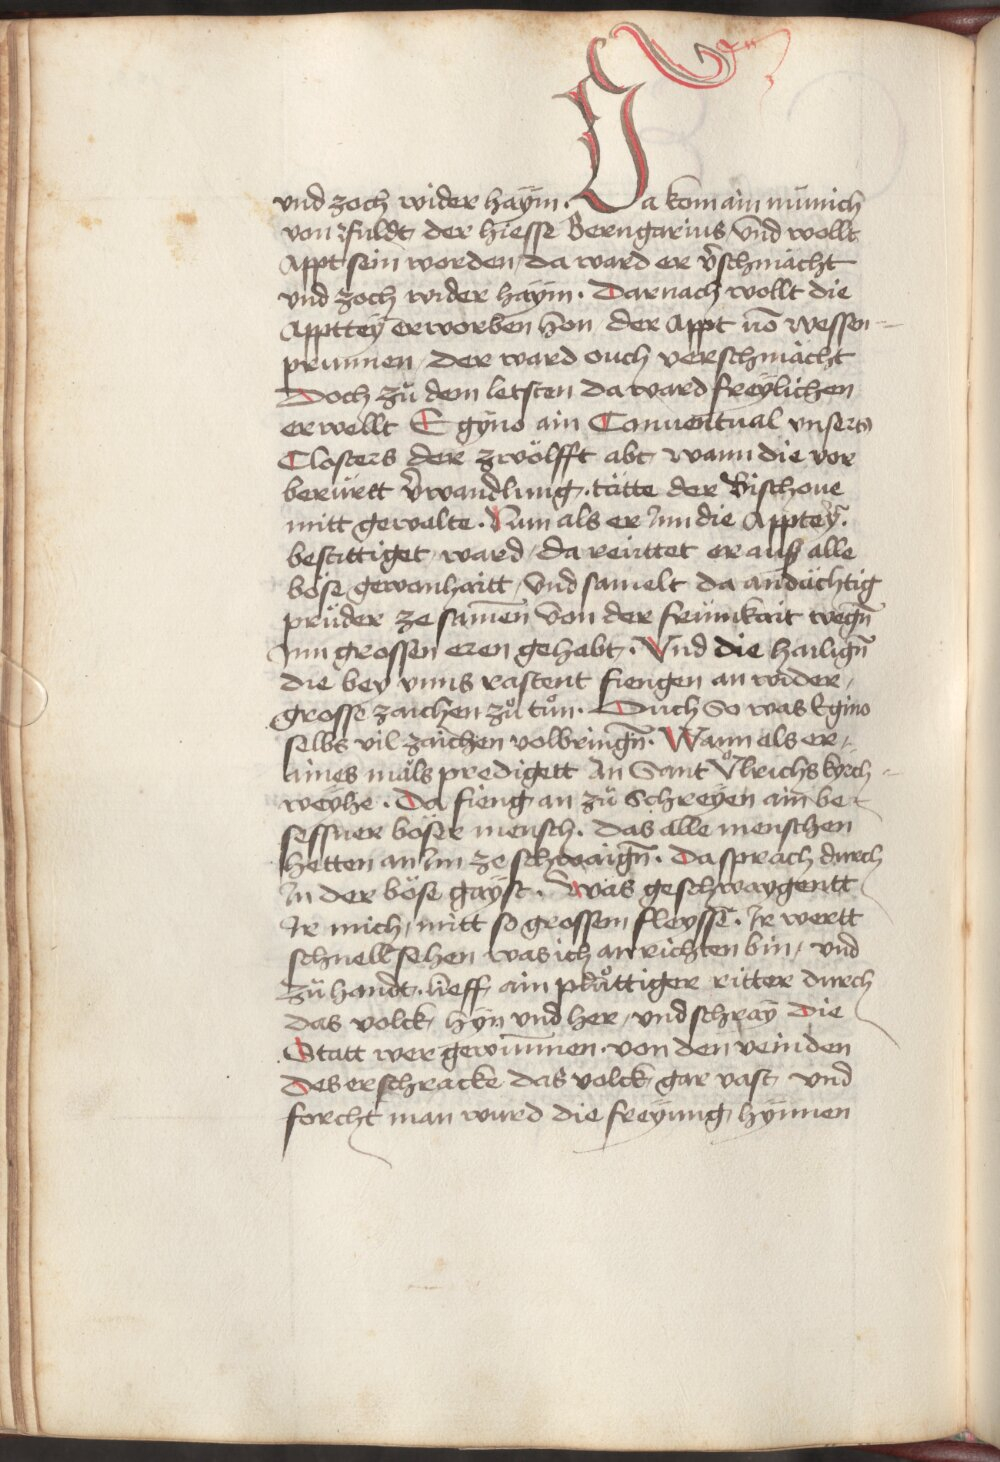 und zoch wider haÿm. Da kom ain münich
von Fuldt der hiesse Berngarius, und wollt
Appt sein worden, da ward er v̄schmächt
und zoch wider haÿm. Darnach wollt die
Appttey erworben hon, der Appt vō Wessen=
prunnen, der ward ouch verschmächt
Doch zů dem letsten da ward freÿlichen
erwellt Egÿno ain Conuentual vnsers
Closters der zwölfft abt wann die vor
berürtt v̄wandlung tätte der Bischoue
mitt gewalte. Nun als er Inn die Apptey.
bestättiget ward, da reüttet er auß alle
böse gewonhaitt, Und samelt da andächtig
prüder ze samen̄ von der frümkait wegn̄
Inn grossen eren gehabt. Und die hailign̄
die bey vnns rastent fiengen an wider,
grosse zaichen zů tůn. Ouch So was Egino
selbs vil zaichen volbringn̄. Wann als er,
aines mäls predigett An Sant Ůlrichs kÿrch=
weÿhe. Da fieng an zů Schreÿen ain be=
sessner böser mensch. das alle menschen
hetten an Im ze schwaign̄. Da sprach durch
In der böse gaÿst. Was geschwaygentt
Ir mich, mitt so grossem fleysse. Ir wertt
schnell sehen was ich anrichten bin, und
zů handt lieff ain plůttiger ritter durch
das volck hÿn und her, und schraÿ die
Statt wer gewunnen von den veinden
Des erschracke das volck gar vast und
forcht man wurd die freÿung hÿnnen